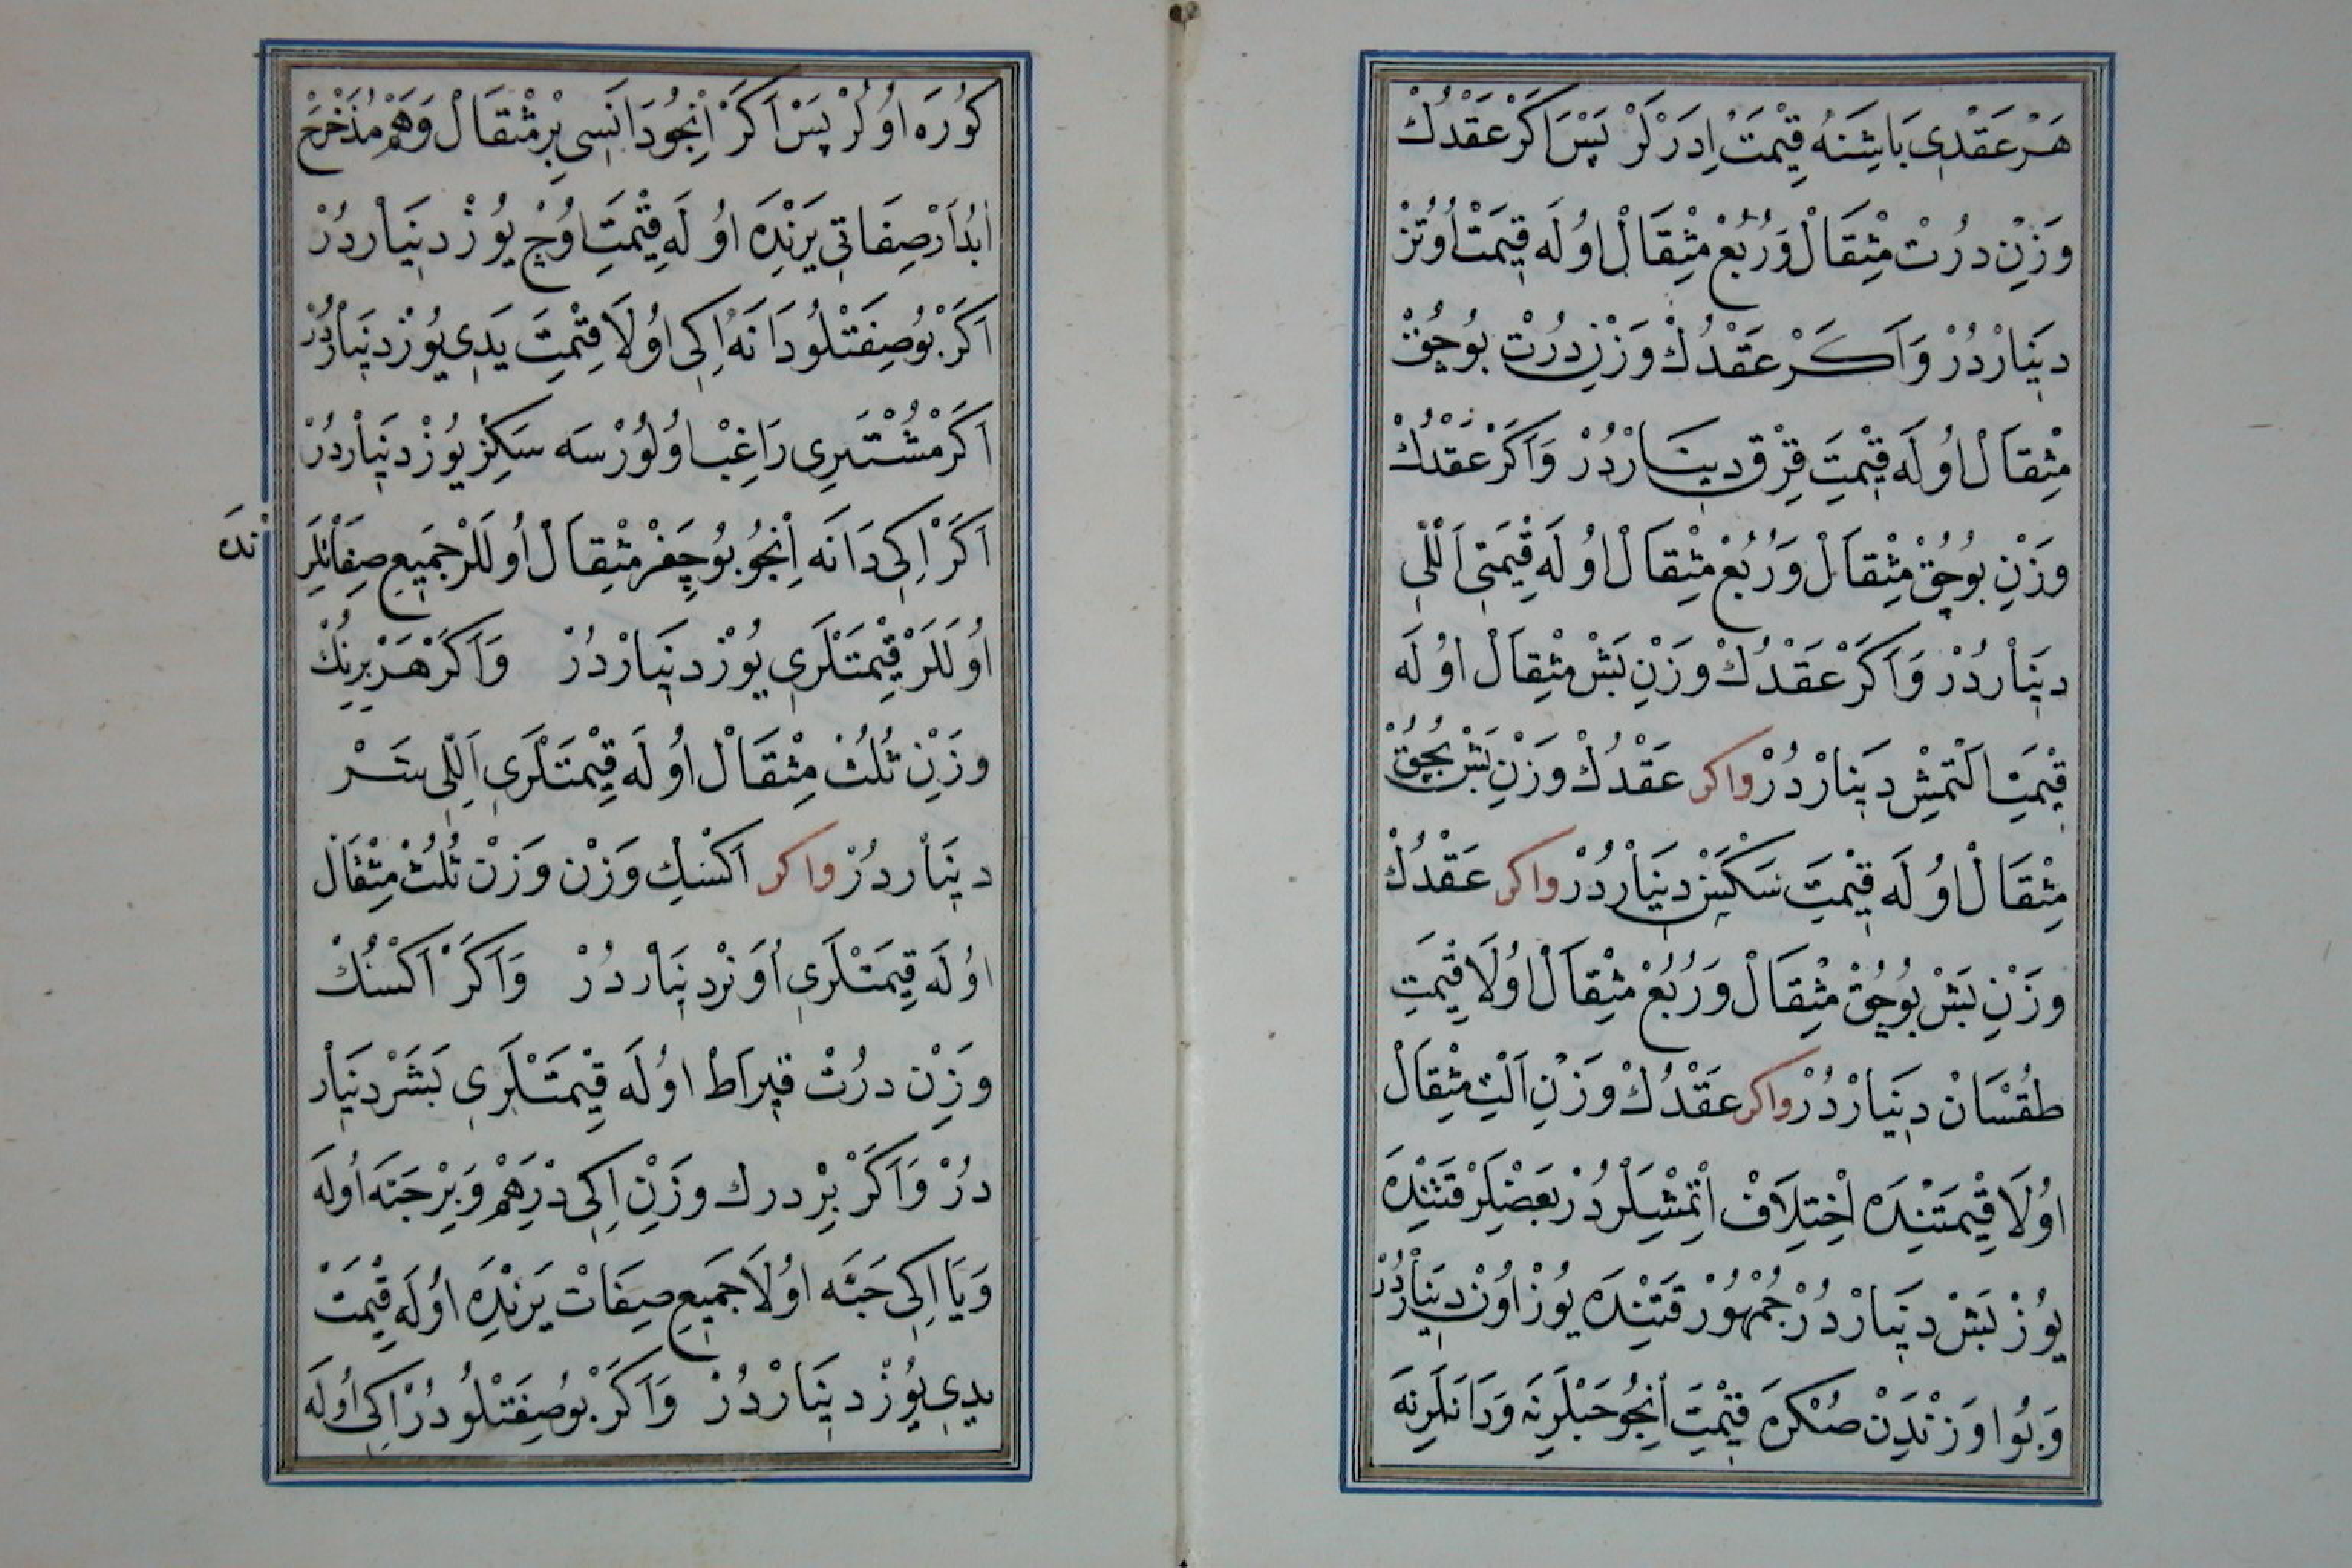 هَرْ عَقْدِى بَاشِنَه قِيْمَتْ اِدَرْلَرْ پَسْ اَكَرْ عَقْدُكْ
وَزْنِ دُرْتْ مِثْقَالْ وَرُبُعْ مِثْقَالْ اوُلَه قِيمَتْ اُوتُزْ
دِينَارْدُرْ وَاَكَرْ عَقْدُكْ وَزْنِ دُرْتْ بُوچُقْ
مِثْقَالْ اوُلَه قِيْمَتِ قِرْقْ دِينَارْدُرْ وَاَكَرْ عَقْدُكْ
وَزْنِ بُوچُقْ مِثْقَالْ وَرُبُعْ مِثْقَالْ اوُلَه قِيْمَتِى اَللّى
دِينَارْدُرْ وَاَكَرْ عَقْدُكْ وَزْنِ بَشْ مِثْقَالْ اوُلَه
قِيْمَتِ اَلْتمِشْ دِينَارْدُرْ واكر عَقْدُكْ وَزْنِ بَشْ بُچُقْ
مِثْقَالْ اوُلَه قِيْمَتِ سَكْسَنْ دِينَارْدُرْ واكر عَقْدُكْ
وَزْنِ بَشْ بُوچُقْ مِثْقَالْ وَرُبُعْ مِثْقَالْ اوُلَا قِيْمَتِ
طُقْسَانْ دِينَارْدُرْ واكر عَقْدُكْ وَزْنِ اَلْتِ مِثْقَالْ
اوُلَا قِيْمَتِنْدَه اِخْتِلَافْ اِتْمِشْلَرْدُرْ بَعْضِلَرْ قَتِنْدَه
يُوزْ بَشْ دِينَارْدُرْ جُمْهُورْ قَتِنْدَه يُوزْ اُونْ دِينَارْدُرْ
وَبُوا وَزْنْدَنْ صُكْرَه قِيْمَتِ اِنْجُو حَبْلَرِنَه وَدَانَلَرِنَه
كُورَه اوُلُرْ پَسْ اَكَرْ اِنْجُو دَانَسِى بِرْ مِثْقَالْ وَهَمْ مُدَحْرَجْ
اَبُدَارْ صِفَاتِى يَرِنْدَه اوُلَه قِيْمَتِ اوُچْ يُوزْ دِينَارْدُرْ
اَكَرْ بُو صِفَتْلُو دَانَه اِكِى اوُلَا قِيْمَتِ يَدِى يُوزْ دِينَارْدُرْ
اَكَرْ مُشْتَرِى رَاغِبْ اوُلُورْسَه سَكِزْ يُوزْ دِينَارْدُرْ
اَكَرْ اِكِى دَانَه اِنْجُو بُوچُقَرْ مِثْقَالْ اُولَلَرْ جَمِيعِ صِفَاتْلَرِ
نْدَه
اوُلَلَرْ قِيْمَتْلَرِى يُوزْ دِينَارْدُرْ وَاَكَرْ هَرْ بِرِنُكْ
وَزْنِ ثُلُثْ مِثْقَالْ اُولَه قِيْمَتْلَرِى اَللِّى شَرْ
دِينَارْدُرْ واكر اَكْسِكْ وَزْنْ وَزْنْ ثُلُثْ مِثْقَالْ
اوُلَه قِيمَتْلَرِى اُوَنَرْ دِينَارْدُرْ وَاَكَرْ اَكْسُكْ
وَزْنِ دُرْتْ قِيرَاطْ اوُلَه قِيْمَتْلَرِى بَشَرْ دِينَارْ
دُرْ وَاَكَرْ بِرْ درك وَزْنِ اِكِى دِرْهَمْ وَبِرْ حَبَّه اُولَه
وَيَا اِكِى حَبَّه اوُلَا جَمِيعِ صِفَاتْ يَرِنْدَه اُولَه قِيْمَتْ
يَدِى يُوزْ دِينَارْدُرْ وَاَكَرْ بُو صِفَتْلُو دُرْ اِكِى اُولَه